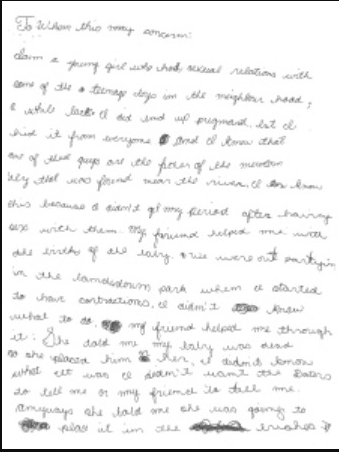 To Whom this may concern:
I am a young girl who had sexual relations with
some of the teenage boys in the neighbor hood,
a while back I did end up pregnant, but I
hid it from everyone and I knew that
one of these guys are the father of the newborn
baby that was found near the river, I know
this because I didn't get my period after having
sex with them. My friend helped me with
the births of the baby. We were out
in the Lansdown park when I started
to have contractions, I didn't know
what to do. my friend helped me through
it: She told me my baby was dead
so she placed him her, I didn't know
what it was I didn't want the
to tell me or my friend to tell me.
anyways she told me she was going to
place it in the bushes